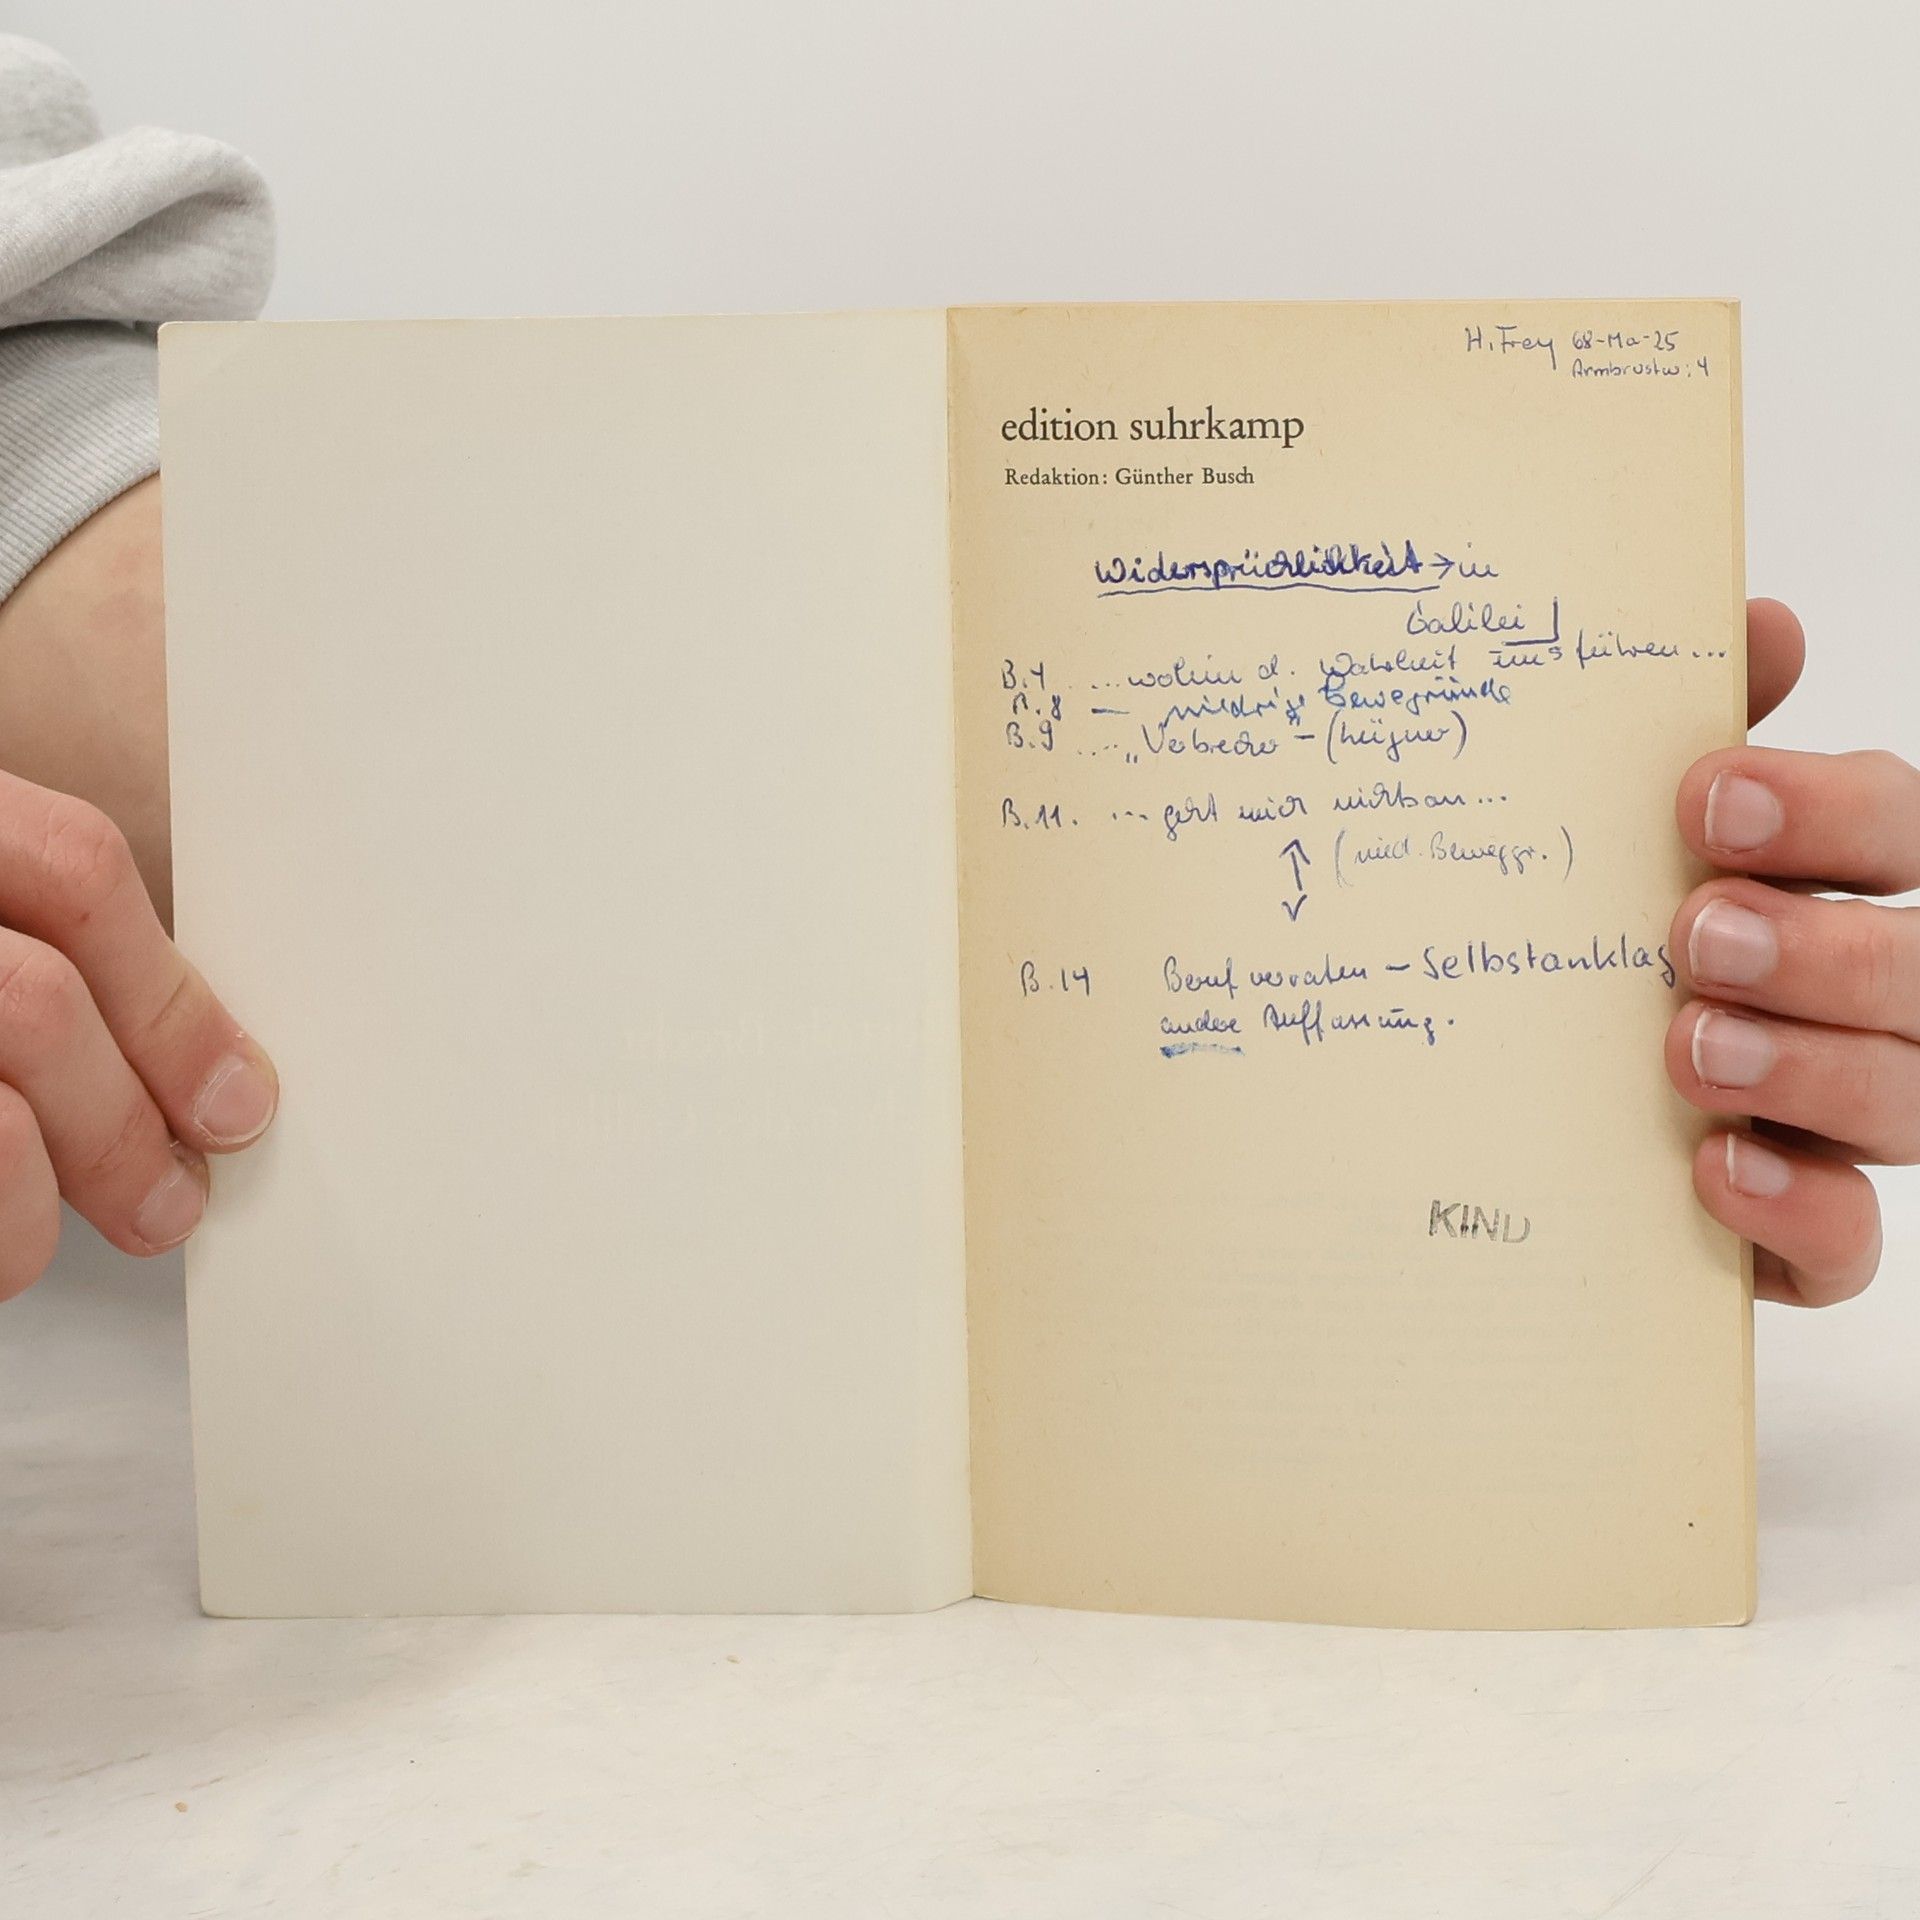 H. Frey 68-Ma-25
Armbrustw: 4
edition suhrkamp
Redaktion: Günther Busch
Widersprüchlichkeit → in
Galilei
B.4 ...wohin d. Wahrheit uns führen...
B.8 — niedrige Beweggründe
B.9 .... „Verbrecher" - (Lügner)
B.11. ... geht mich nichts an...
(nied. Beweggr.)
B.14 Beruf verraten - Selbstanklag
andere Auffassung.
KIND